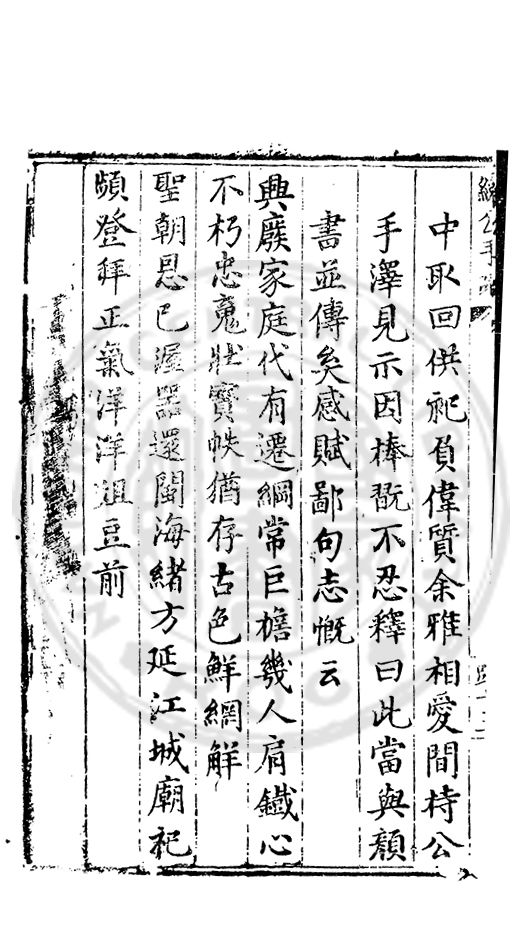 中取回供祀貟偉質余雅相愛間持公
手澤見示因捧翫不忍釋曰此當與顏
書並傳矣感賦鄙句志慨云
興廢家庭代有遷綱常巨擔幾人肩鐵心
不朽忠䰟壯寳帙猶存古色鮮網解
聖朝恩已渥器還閩海緒方延江城廟祀
頻登拜正氣洋洋俎豆前